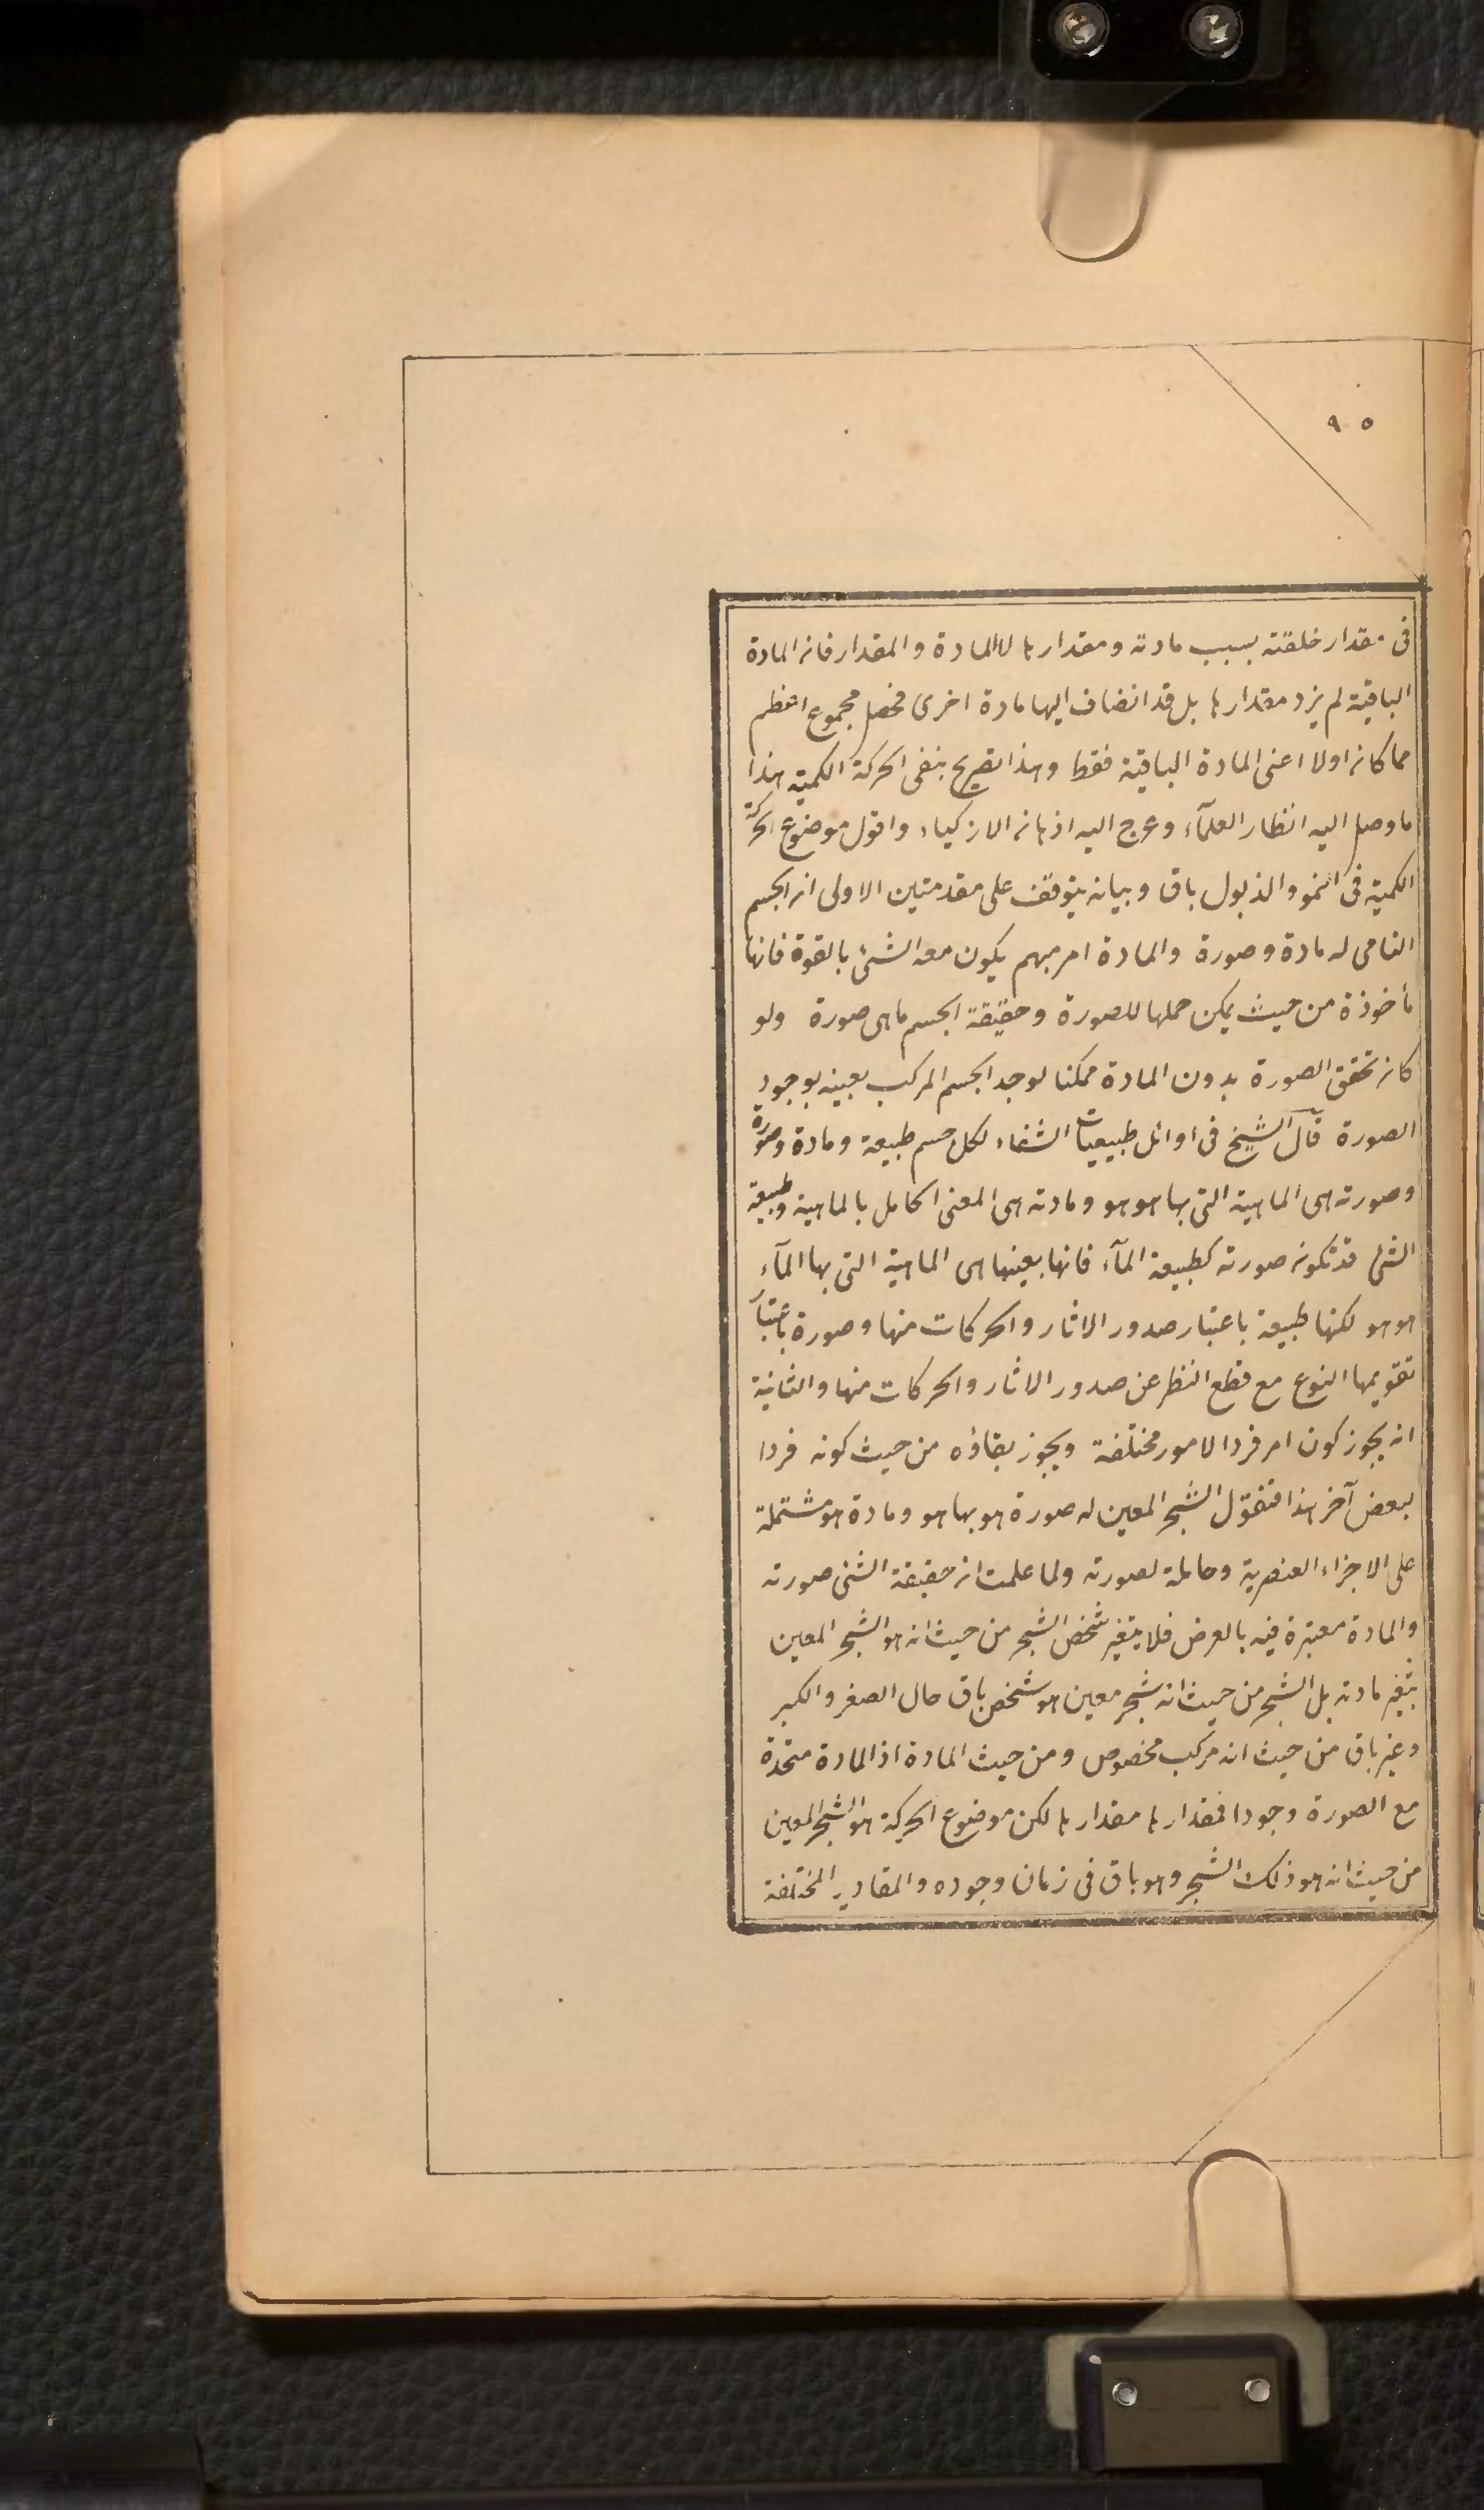 ٩٥
فى مقدار خلقته بسبب مادته ومقدارها لاالمادة والمقدار فان المادة
الباقية لم يزد مقدارها بل قد انضاف اليها مادة اخرى فحصل مجموع اعظم
مما كان اولا اعنى المادة الباقية فقط وهذا تصريح بنفى الحركة الكمية هذا
ما وصل اليه انظار العلمآء وعرج اليه اذهان الاذكياء واقول موضوع الحركة
الكمية فى النمو والذبول باق وبيانه يتوقف على مقدمتين الاولى ان الجسم
النامى له مادة وصورة والمادة امر مبهم يكون معه الشئ بالقوة فانها
مأخوذة من حيث يمكن حملها للصورة وحقيقة الجسم ماهى صورة ولو
كان تحقق الصورة بدون المادة ممكنا لوجد الجسم المركب بعينه بوجود
الصورة قآل الشيخ فى اوائل طبيعيات الشفاء لكل جسم طبيعة ومادة وصورة
وصورته هى الماهية التى بها هو هو ومادته هى المعنى الحامل بالماهية وطبيعة
الشئ قد تكون صورته كطبيعة المآء فانها بعينها هى الماهية التى بها المآء
هو هو لكنها طبيعة باعتبار صدور الاثار والحركات منها وصورة باعتبار
تقويمها النوع مع قطع النظر عن صدور الاثار والحركات منها والثانية
انه يجوز كون امر فردا لامور مختلفة ويجوز بقاؤه من حيث كونه فردا
لبعض آخر هذا فنقول الشجر المعين له صورة هو بها هو ومادة هو مشتملة
على الاجزاء العنصرية وحاملة لصورته ولما علمت ان حقيقة الشئ صورته
والمادة معتبرة فيه بالعرض فلا يتغير شخص الشجر من حيث انه هو الشجر المعين
بتغير مادته بل الشجر من حيث انه شجر معين هو شخص باق حال الصغر والكبر
وغير باق من حيث انه مركب مخصوص ومن حيث المادة اذ المادة متحدة
مع الصورة وجودا فمقدارها مقدارها لكن موضوع الحركة هو الشجر المعين
من حيث انه هو ذلك الشجر وهو باق فى زمان وجوده والمقادير المختلفة